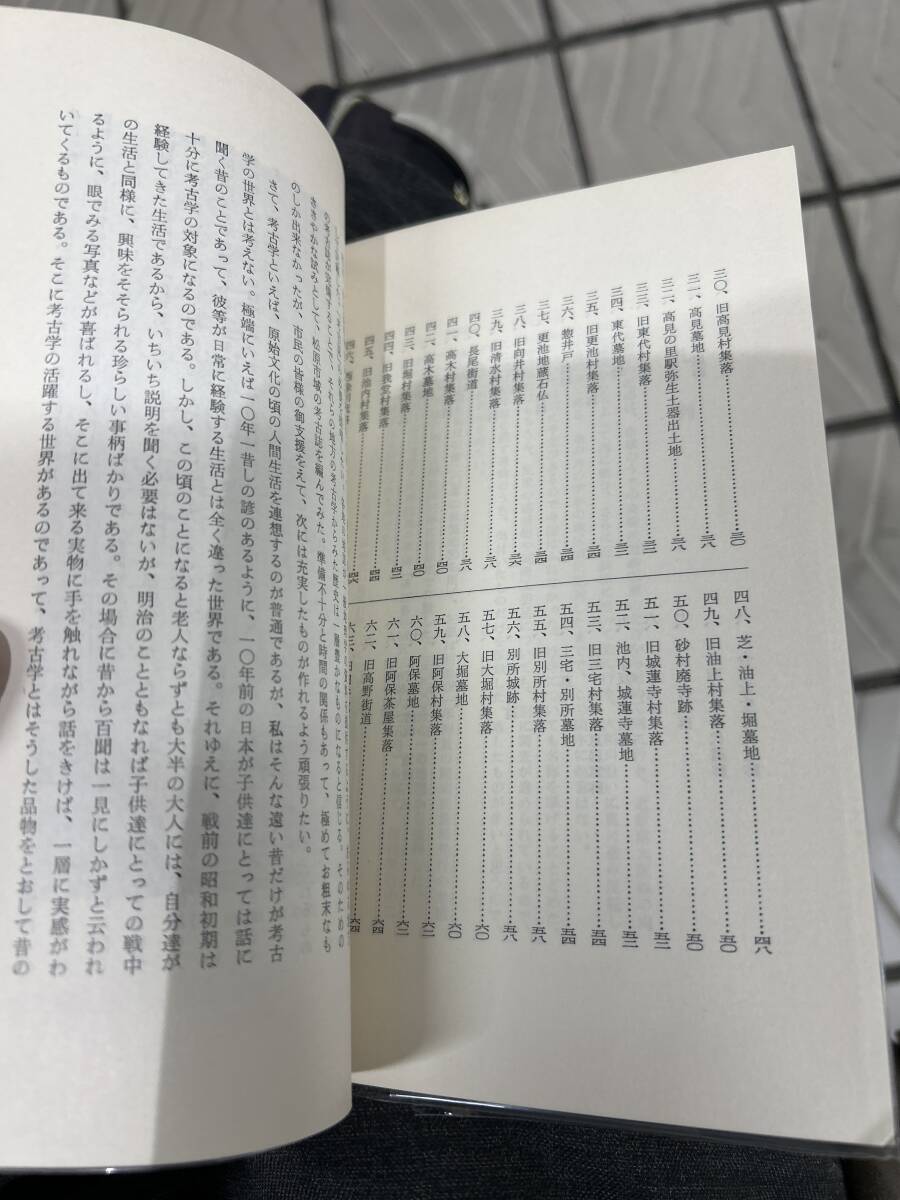 三〇、旧高見村集落…………三〇
三一、高見墓地…………二八
三二、高見の里駅弥生土器出土地…………二八
三三、旧東代村集落…………三二
三四、東代墓地…………三二
三五、旧更池村集落…………三四
三六、惣井戸…………三四
三七、更池地蔵石仏…………三四
三八、旧向井村集落…………三六
三九、旧清水村集落…………三六
四〇、長尾街道…………三八
四一、高木村集落…………四〇
四二、高木墓地…………四〇
四三、旧堀村集落…………四二
四四、旧我堂村集落…………四四
四五、旧池内村集落…………四四
四八、芝・油上・堀墓地…………四八
四九、旧油上村集落…………五〇
五〇、砂村廃寺跡…………五〇
五一、旧城蓮寺村集落…………五二
五二、池内、城蓮寺墓地…………五二
五三、旧三宅村集落…………五四
五四、三宅・別所墓地…………五四
五五、旧別所村集落…………五八
五六、別所城跡…………五八
五七、旧大堀村集落…………六〇
五八、大堀墓地…………六〇
五九、旧阿保村集落…………六二
六〇、阿保墓地…………六二
六一、旧阿保茶屋集落…………六四
六二、旧高野街道…………六四
ささやかな試みとして、松原市域の考古誌を編んでみた。準備不十分と時間の関係もあって、極めてお粗末なも
のしか出来なかったが、市民の皆様の御支援をえて、次には充実したものが作れるよう頑張りたい。
さて、考古学といえば、原始文化の頃の人間生活を連想するのが普通であるが、私はそんな遠い昔だけが考古
学の世界とは考えない。極端にいえば一〇年一昔しの諺のあるように、一〇年前の日本が子供達にとっては話に
聞く昔のことであって、彼等が日常に経験する生活とは全く違った世界である。それゆえに、戦前の昭和初期は
十分に考古学の対象になるのである。しかし、この頃のことになると老人ならずとも大半の大人には、自分達が
経験してきた生活であるから、いちいち説明を聞く必要はないが、明治のことともなれば子供達にとっての戦中
の生活と同様に、興味をそそられる珍らしい事柄ばかりである。その場合に昔から百聞は一見にしかずと云われ
るように、眼でみる写真などが喜ばれるし、そこに出て来る実物に手を触れながら話をきけば、一層に実感がわ
いてくるものである。そこに考古学の活躍する世界があるのであって、考古学とはそうした品物をとおして昔の